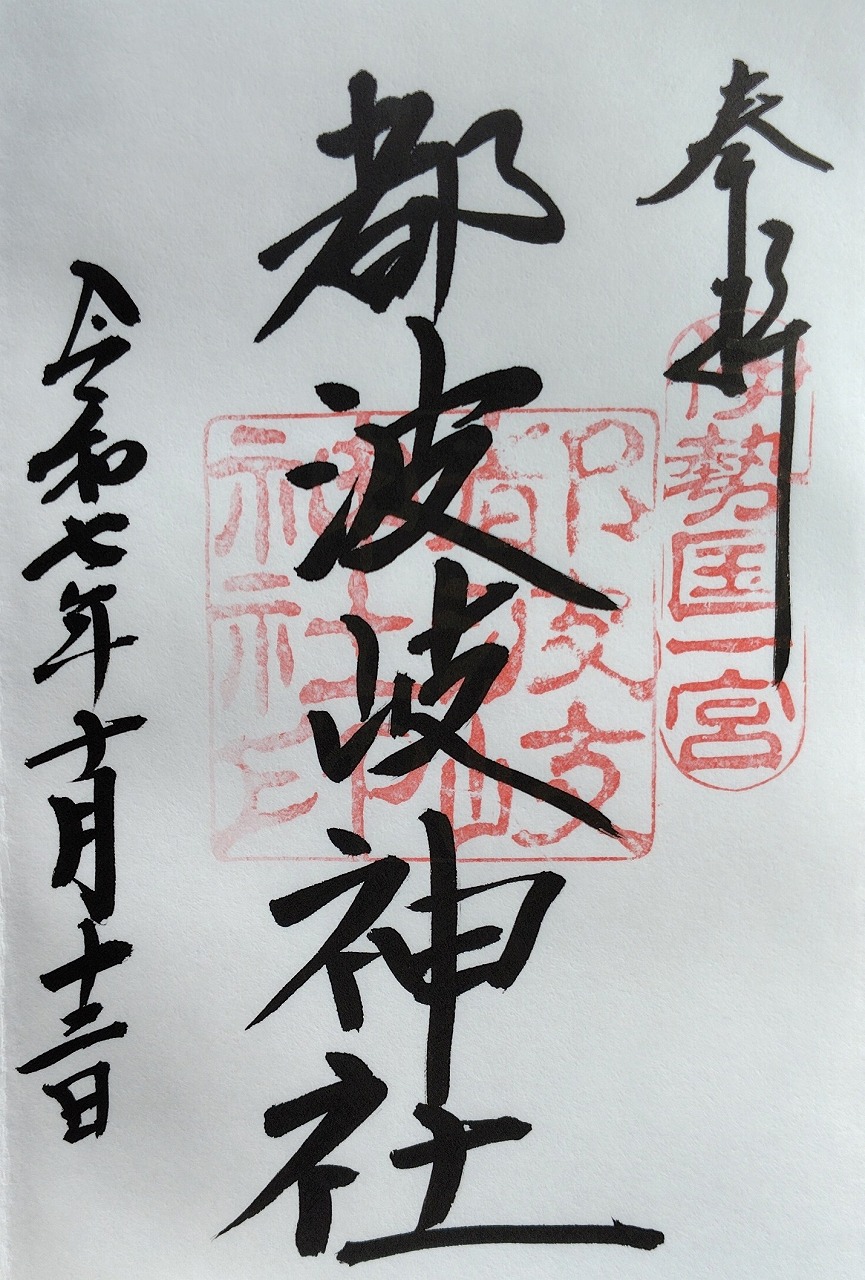 奉拝
伊勢国一宮
都波岐神社
都波岐神社印
令和七年十月十三日